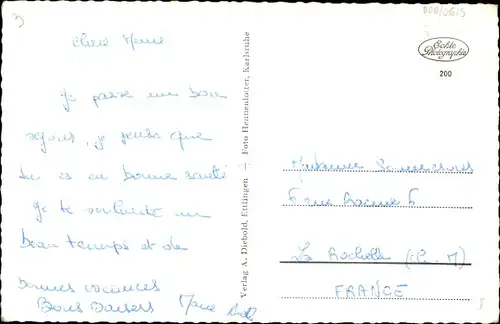 chère Marie
Je passe un bon
séjour, je pense que
tu es en bonne santé
Je te souhaite un
beau temps et de
bonnes vacances
Bons Baisers Marie
Verlag A. Diebold, Ettlingen + Foto Hennenlotter, Karlsruhe
Echte
Photographie
200
Madame
6 rue 6
La Rochelle (Ch. M)
FRANCE